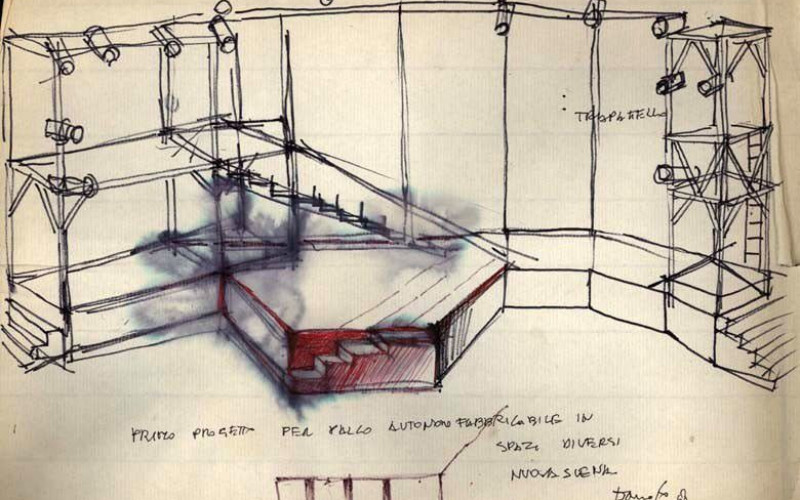 TRABATELLO
PRIMO PROGETTO PER PALCO AUTONOMO FABBRICABILE IN
SPAZI DIVERSI
NUOVA SCENA